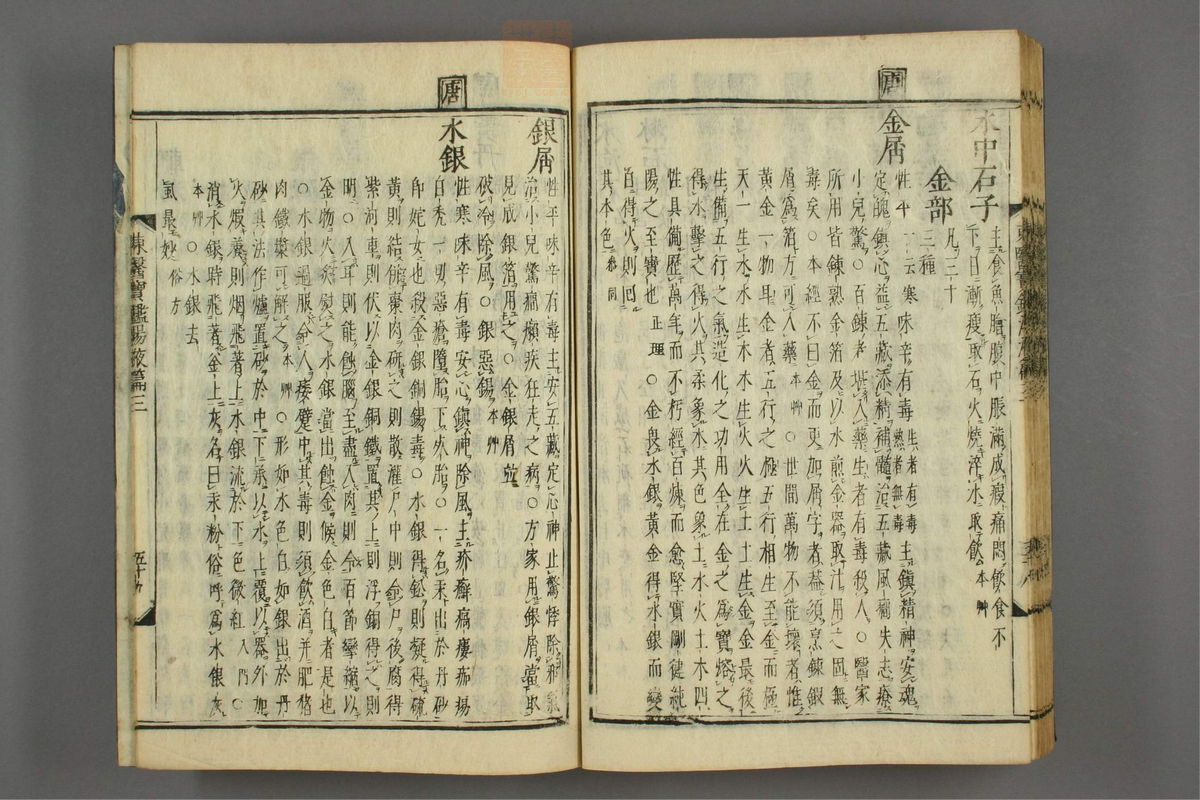 水中石子 主食魚鱠腹中脹滿成瘕痛悶飮食不
下日漸瘦取石火燒淬水取飮 本艸
金部 凡三十三種
唐 金屑 性平一云寒味辛有毒 生者有毒熟者無毒 主鎭精神安魂
定魄鎭心益五藏添精補髓治五藏風癎失志療
小兒驚○百鍊者堪入藥生者有毒殺人○醫家
所用皆鍊熟金箔及以水煎金器取汁用之固無
毒矣○本經不曰金而更加屑字者盖須烹鍊鍜
屑爲箔方可入藥 本艸 ○世間萬物不能壞者惟
黃金一物耳金者五行之極五行相生至金而極
天一生水水生木木生火火生土土生金金最後
生備五行之氣造化之功用全在金之爲寶熔之
得水擊之得火其柔象木其色象土水火土木四
性具備歷萬年而不朽經百煉而愈堅實剛健純
陽之至寶也 正理 ○金畏水銀黃金得水銀而變
白得火則回
其本色 參同
銀屑 性平味辛有毒主安五藏定心神止驚悸除邪氣
治小兒驚癎癲疾狂走之病○方家用銀屑當取
見成銀箔用之○金銀屑並
破冷除風○銀惡錫 本艸
唐 水銀 性寒味辛有毒安心鎭神除風主疥癬痛瘻痂瘍
白禿一切惡瘡墮胎下死胎○一名汞出於丹砂
卽姹女也殺金銀銅錫毒○水銀得鈆則凝得硫
黃則結併棗肉硏之則散灌尸中則令尸後腐得
紫河車則伏以金銀銅鐵置其上則浮銅得之則
明○入耳則能蝕腦至盡入肉則令百節攣縮以
金物火炙熨之水銀當出蝕金候金色白者是也
○水銀過服令人痿躄中其毒則須飮酒并肥猪
肉鐵漿可解之 本艸 ○形如水色白如銀出於丹
砂其法作爐置砂於中下承以水上覆以器外加
火煆養則烟飛著上水銀流於下色微紅 入門 ○
消水銀時飛著釜上灰名曰汞粉俗呼爲水銀灰
本艸 ○水銀去
虱最妙 俗方
東醫寶鑑湯液篇三
五十九